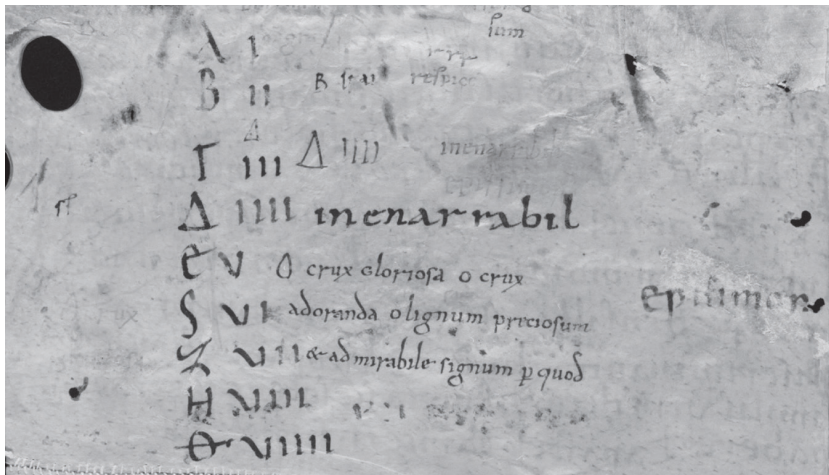 sum
Α I
Β II B
respice
Δ
Γ III Δ IIII inenarrabil
Δ IIII inenarrabil
Є V O crux gloriosa o crux
epistimon
Ϛ VI adoranda o lignum preciosum
Ζ VII & admirabile signum p quod
Η VIIII
Θ VIIIII